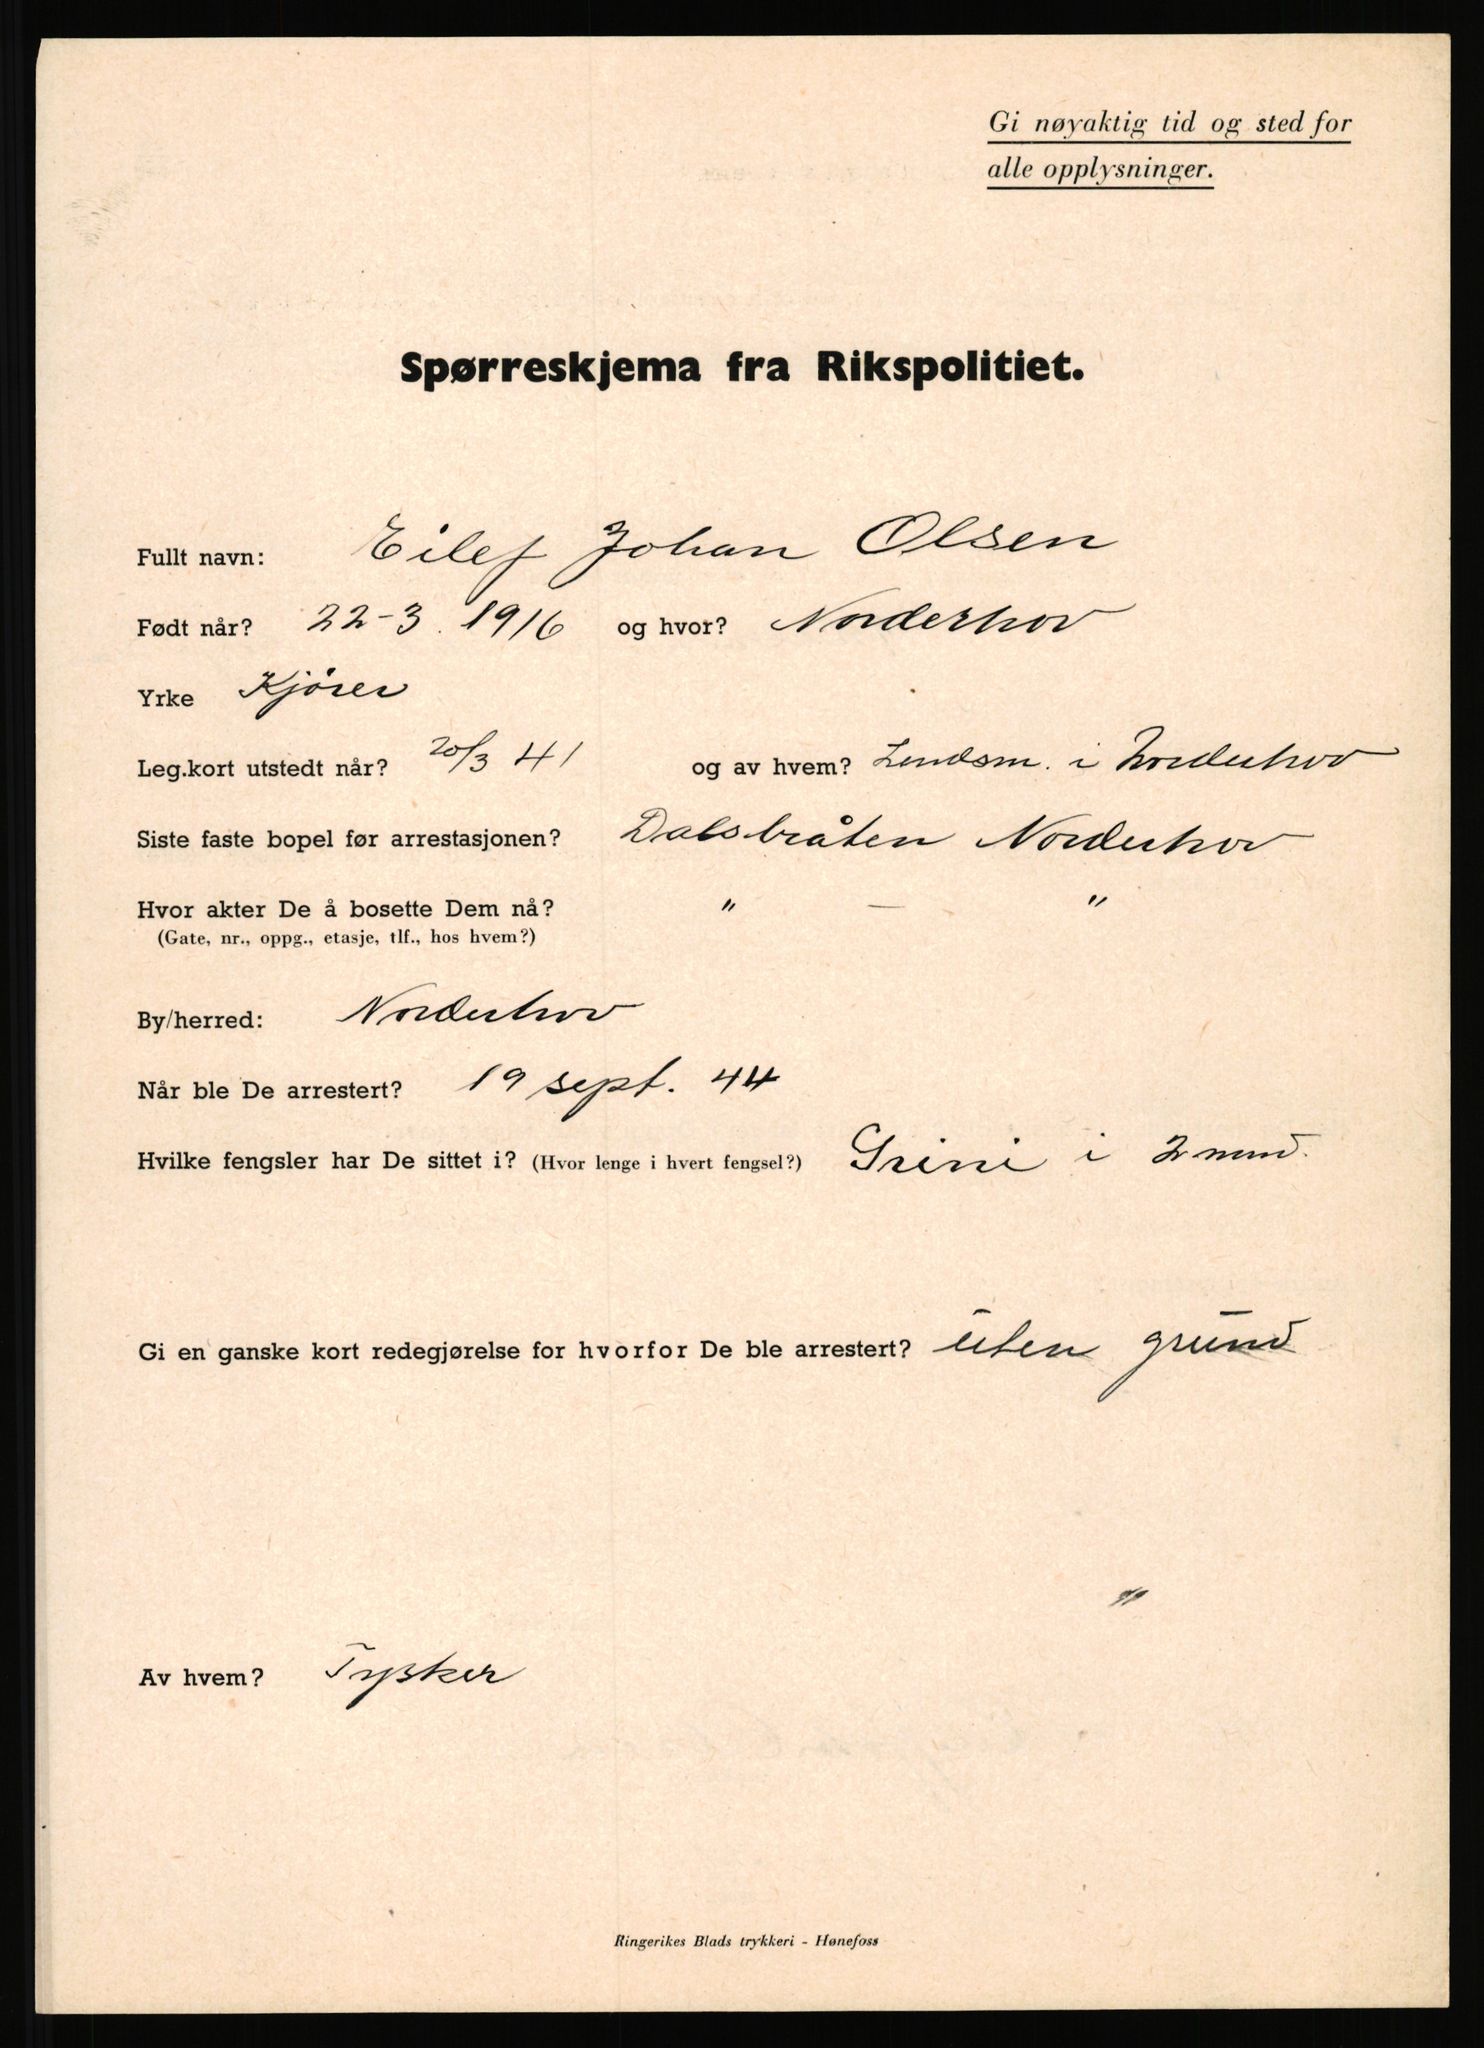 Gi nøyaktig tid og sted for
alle opplysninger.
Spørreskjema fra Rikspolitiet.
Fullt navn: Eilef Johan Olsen
Født når? 22-3. 1916 og hvor? Norderhov
Yrke Kjører
Leg.kort utstedt når? 20/3 41 og av hvem? Lendsm. i Norderhov
Siste faste bopel før arrestasjonen? Dalsbråten Norderhov
Hvor akter De å bosette Dem nå? " — "
(Gate, nr., oppg., etasje, tlf., hos hvem?)
By/herred: Norderhov
Når ble De arrestert? 19 sept. 44
Hvilke fengsler har De sittet i? (Hvor lenge i hvert fengsel?) Grini i 2 mnd.
Gi en ganske kort redegjørelse for hvorfor De ble arrestert? Uten grund
"
Av hvem? Tysker
Ringerikes Blads trykkeri - Hønefoss